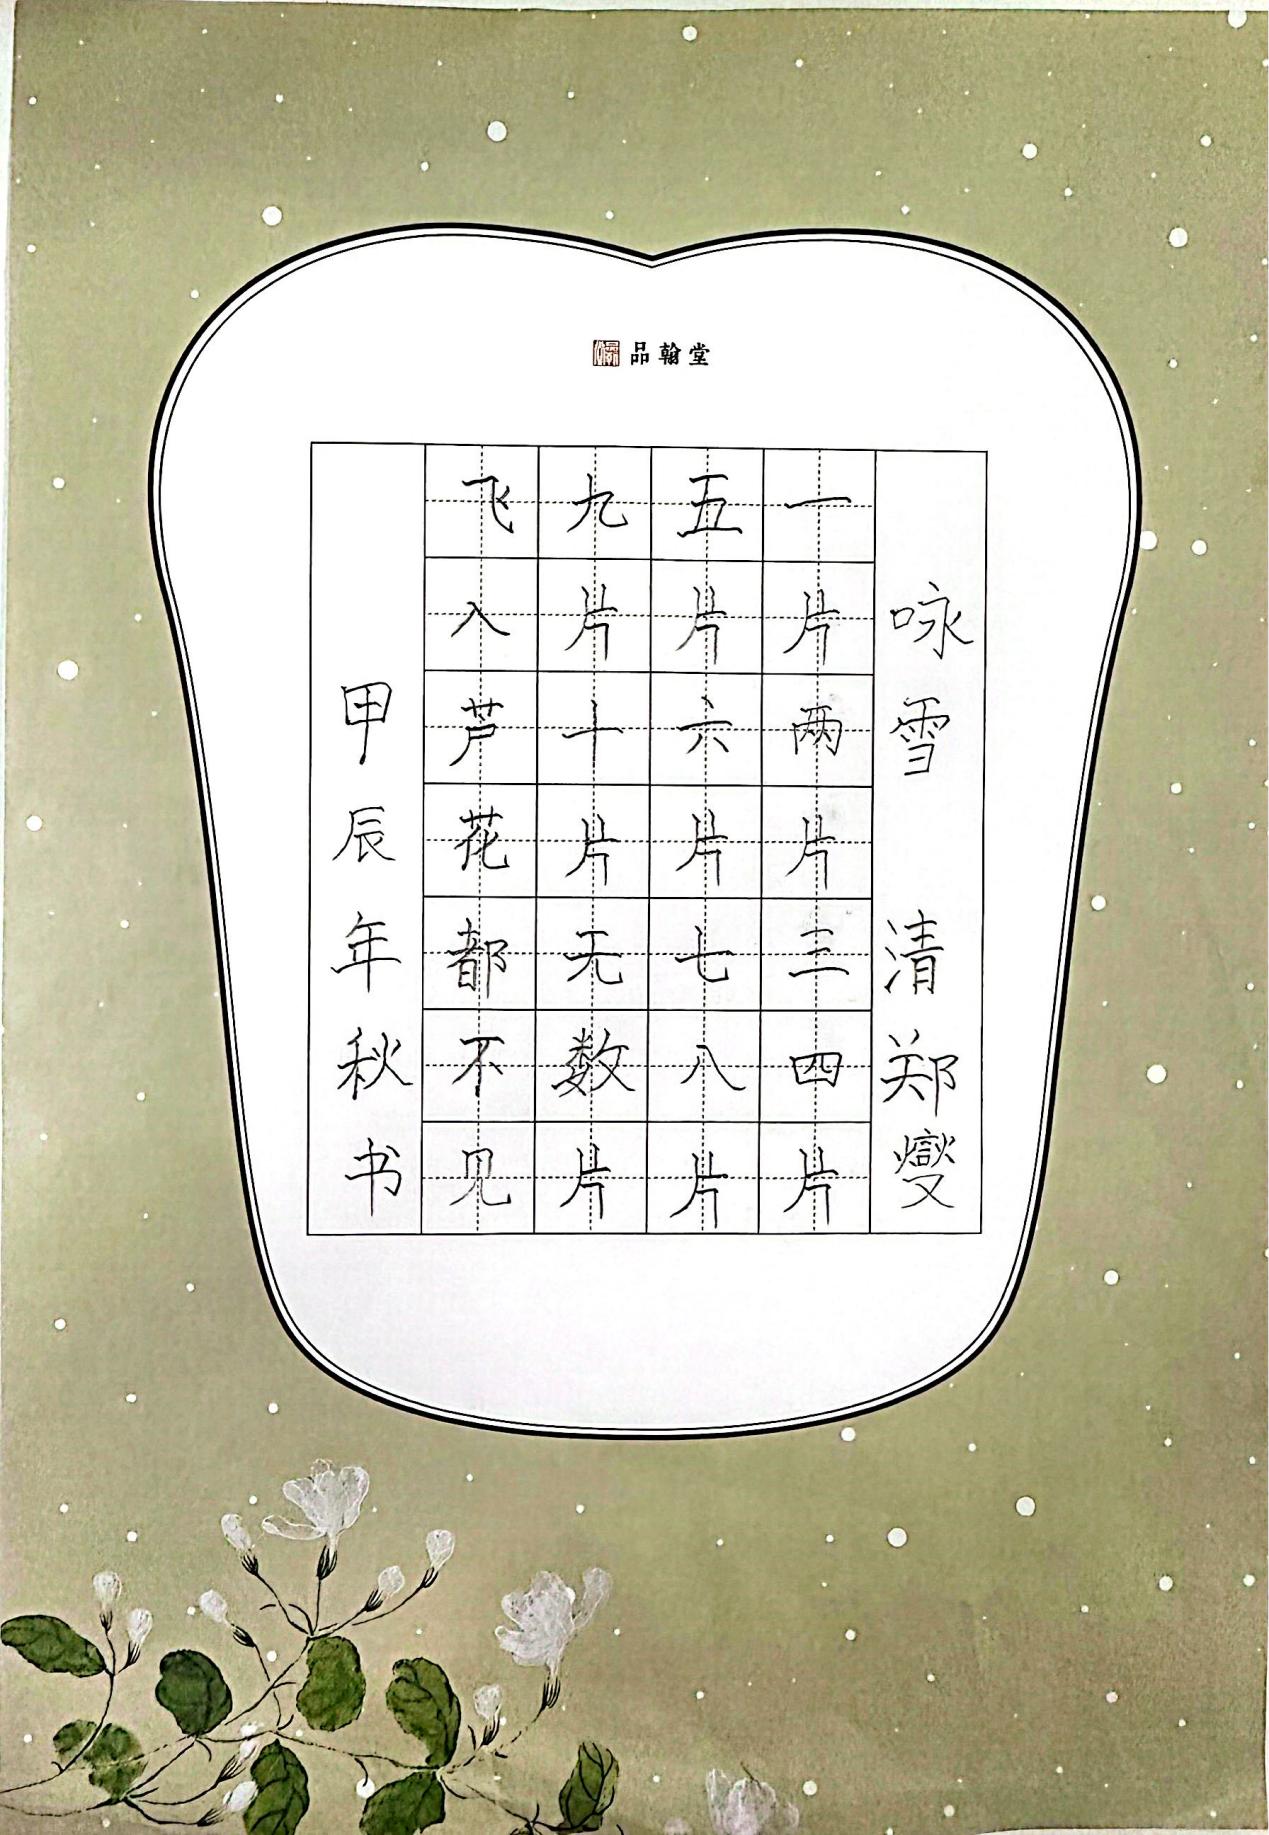 品翰堂
咏雪 清 郑燮
一片两片三四片
五片六片七八片
九片十片无数片
飞入芦花都不见
甲辰年秋书